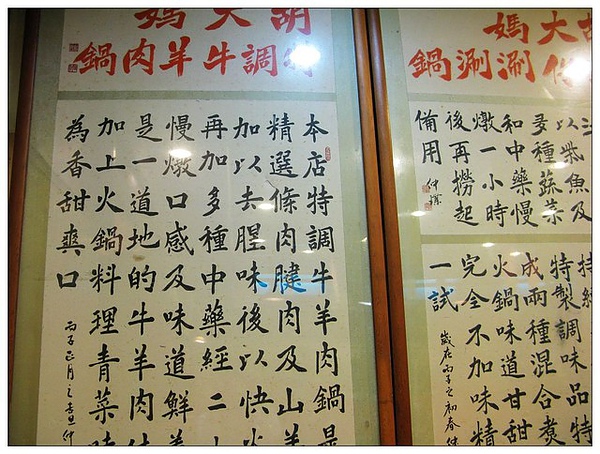 胡大媽
特調牛羊肉鍋
本店特調牛羊肉鍋是
精選條肉腱肉及山羊
加以去腥味後以快火
再加多種中藥經二
慢燉口感及味道鮮美
是一道地的牛羊肉
加上火鍋料理青菜
為香甜爽口
丙子正月之吉旦仲
胡大媽
涮涮鍋
以柴魚及
多種蔬菜
和中藥慢
燉一小時
後再撈起
備用
仲
特
特製調味品特
成兩種混合煮
火鍋味道甘甜
完全不加味精
一試
歲在丙子之初春仲